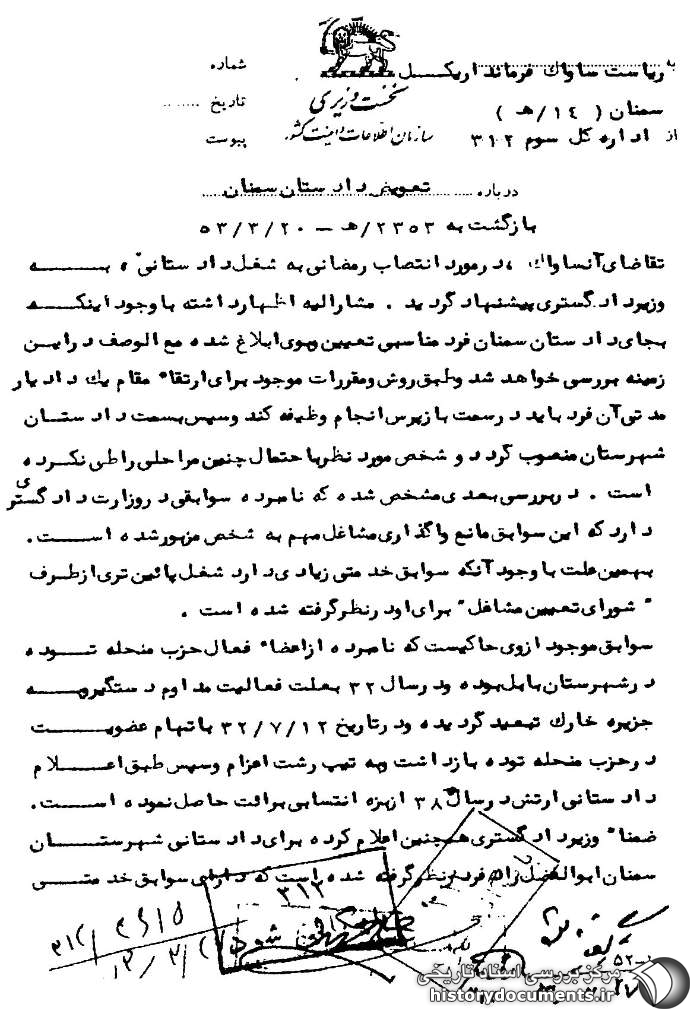 به ریاست ساواک فرمانداریکل
سمنان ( ۱۴/هـ )
از اداره کل سوم ۳۱۲
نخست وزیری
سازمان اطلاعات و امنیت کشور
شماره
تاریخ
پیوست
درباره تعویض دادستان سمنان
بازگشت به ۲۳۵۳/هـ – ۵۳/۳/۲۰
تقاضای آنساواک ، در مورد انتصاب رمضانی به شغل دادستانی ، به
وزیر دادگستری پیشنهاد گردید . مشارالیه اظهار داشته با وجود اینکه
بجای دادستان سمنان فرد مناسبی تعیین و بوی ابلاغ شده مع الوصف در این
زمینه بررسی خواهد شد و طبق روش و مقررات موجود برای ارتقاء مقام یک دادیار
مدتی آن فرد باید در سمت بازپرس انجام وظیفه کند و سپس بسمت دادستان
شهرستان منصوب گردد و شخص مورد نظر باحتمال چنین مراحلی را طی نکرده
است . در بررسی بعدی مشخص شده که نامبرده سوابقی در وزارت دادگستری
دارد که این سوابق مانع واگذاری مشاغل مهم به شخص مزبور شده است .
بهمین علت با وجود آنکه سوابق خدمتی زیادی دارد شغل پائین تری از طرف
" شورای تعیین مشاغل " برای او در نظر گرفته شده است .
سوابق موجود از وی حاکیست که نامبرده از اعضاء فعال حزب منحله توده
در شهرستان بابل بوده و در سال ۳۲ بعلت فعالیت مداوم دستگیر و به
جزیره خارک تبعید گردیده و در تاریخ ۳۲/۷/۱۲ باتهام عضویت
در حزب منحله توده بازداشت و به تیپ رشت اعزام و سپس طبق اعلام
دادستانی ارتش در سال ۳۸ از بزه انتسابی برائت حاصل نموده است .
ضمناً وزیر دادگستری همچنین اعلام کرده برای دادستانی شهرستان
سمنان ابوالفضل راد فرد در نظر گرفته شده است که دارای سوابق خدمتی
۳۱۲
شود
مرکز بررسی اسناد تاریخی
historydocuments.ir